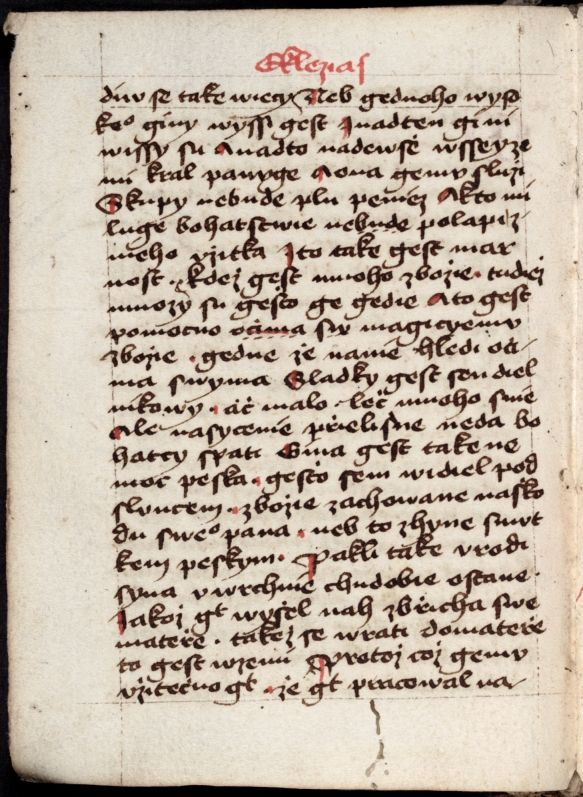 Eklezias
diw se take wiecy Neb gednoho wyso
keo giny wyssi gest Inadten gini
wissy su Anadto nadewse wsseyze
mi kral panuge Aona gemu sluzi
Skupy nebude pln peniez Akto mi
luge bohatstwie nebude polapiz
nieho vzitka Ito take gest mar
nost · kdez gest mnoho zbozie · tudiez
mnozy su gesto ge gedie Ato gest
pomocno ocima sw magicyemu
zbozie · gedne ze namie hledi oci
ma swyma Sladky gest sen diel
nikowy · ač malo leč mnoho snie
Ale nasycenie přielisne neda bo
hatcy spati Gina gest take ne
moc peska · gesto sem widiel pod
sluncem · zbozie zachowane naško
du sweo pana · neb to zhyne smut
kem peskym · Pakli take vrodi
syna vwrchnie chudobie ostane ·
Jakoz gt wyšel nah zbřicha swe
mateře · takez se wrati domateře
to gest wzemi Protoz coz gemu
vzitečno gt · že gt pracowal na